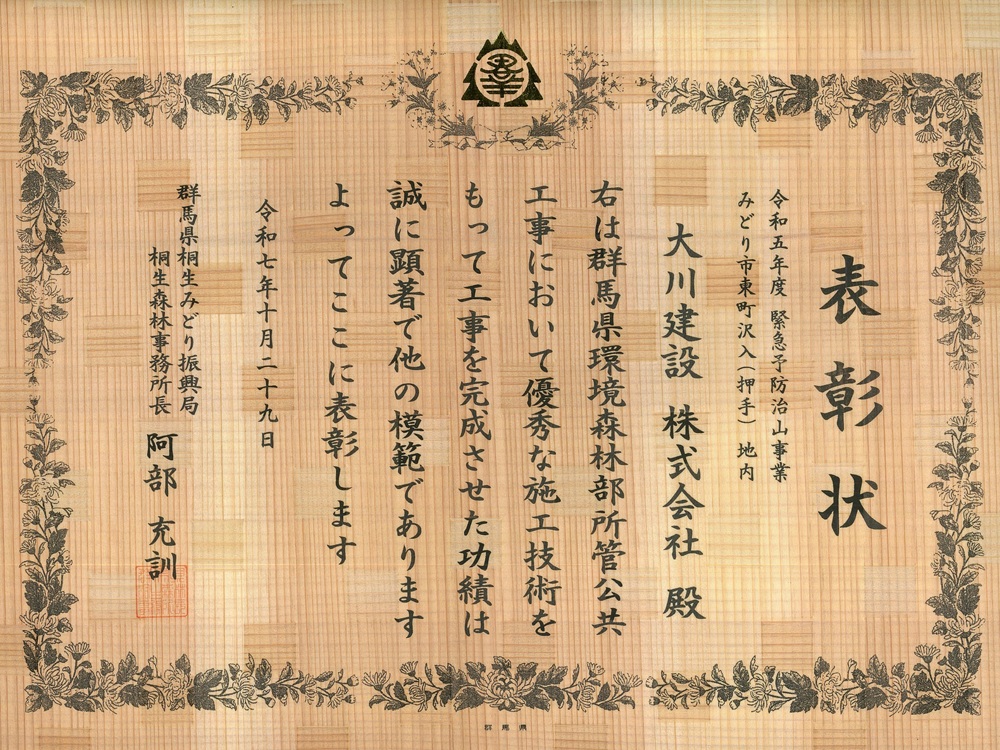 表彰状
令和五年度 緊急予防治山事業
みどり市東町沢入(押手) 地内
大川建設 株式会社 殿
右は群馬県環境森林部所管公共
工事において優秀な施工技術を
もって工事を完成させた功績は
誠に顕著で他の模範であります
よってここに表彰します
令和七年十月二十九日
群馬県桐生みどり振興局
桐生森林事務所長 阿部 充訓
群馬県